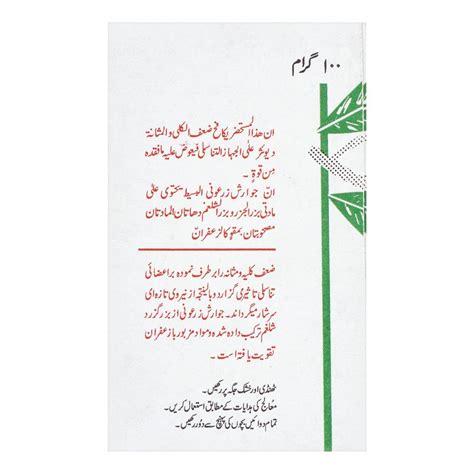 ۱۰۰ گرام
ان هذا المستحضر يكافح ضعف الكلى والمثانة
ويؤثر على الجهاز التناسلي فيعوض عليه ما فقده
من قوة۔
انّ جوارش زرعونی البسيط يحتوى على
مادتى بزر الجزر وبزر الشلغم وهاتان المادتان
مصحوبتان بمقو كالزعفران
ضعف کلیه و مثانه را برطرف نموده بر اعضائی
تناسلی تاثیری گزارد و بالنیتجه از نیروی تازه ای
سرشار میگرداند۔ جوارش زرعونی از بزر گزرد
شلغم ترکیب داده شده و مواد مزبور باز عفران
تقویت یافته است۔
ٹھنڈی اور خشک جگہ پر رکھیں۔
معالج کی ہدایات کے مطابق استعمال کریں۔
تمام دوائیں بچوں کی پہنچ سے دُور رکھیں۔